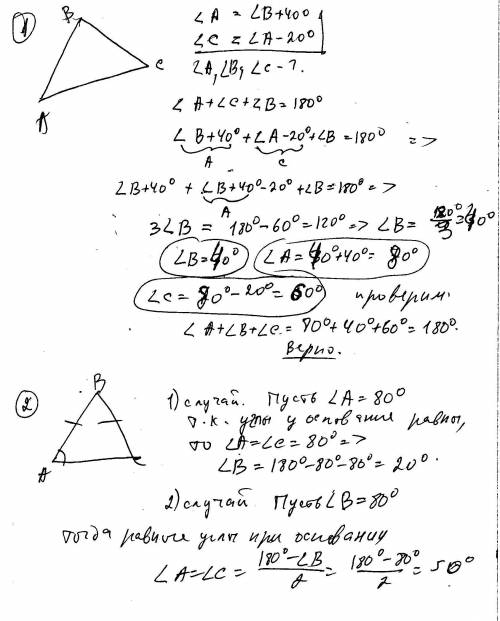 1
B
C
A
∠A = ∠B+40°
∠C = ∠A-20°
∠A, ∠B, ∠C - ?
∠A+∠C+∠B=180°
∠B+40°+∠A-20°+∠B=180° =>
A C
∠B+40° + ∠B+40°-20°+∠B=180° =>
A
3∠B = 180°-60°=120° => ∠B= 120°/3=40°
∠B=40° ∠A=40°+40°=80°
∠C=80°-20°=60° проверим:
∠A+∠B+∠C=80°+40°+60°=180°.
Верно.
2
B
A
C
1) случай. Пусть ∠A=80°
т.к. углы у основание равны,
то ∠A=∠C=80° =>
∠B=180°-80-80°=20°.
2) случай. Пусть ∠B=80°
тогда равные углы при основании
∠A=∠C= 180°-∠B/2 = 180°-80°/2 = 50°